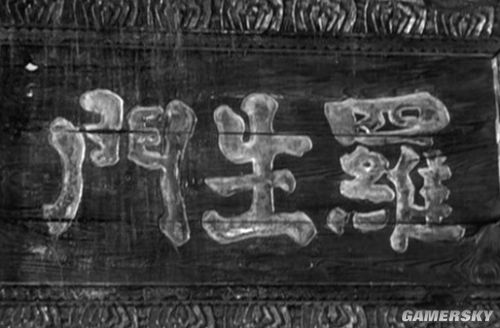 羅生門
GAMERSKY